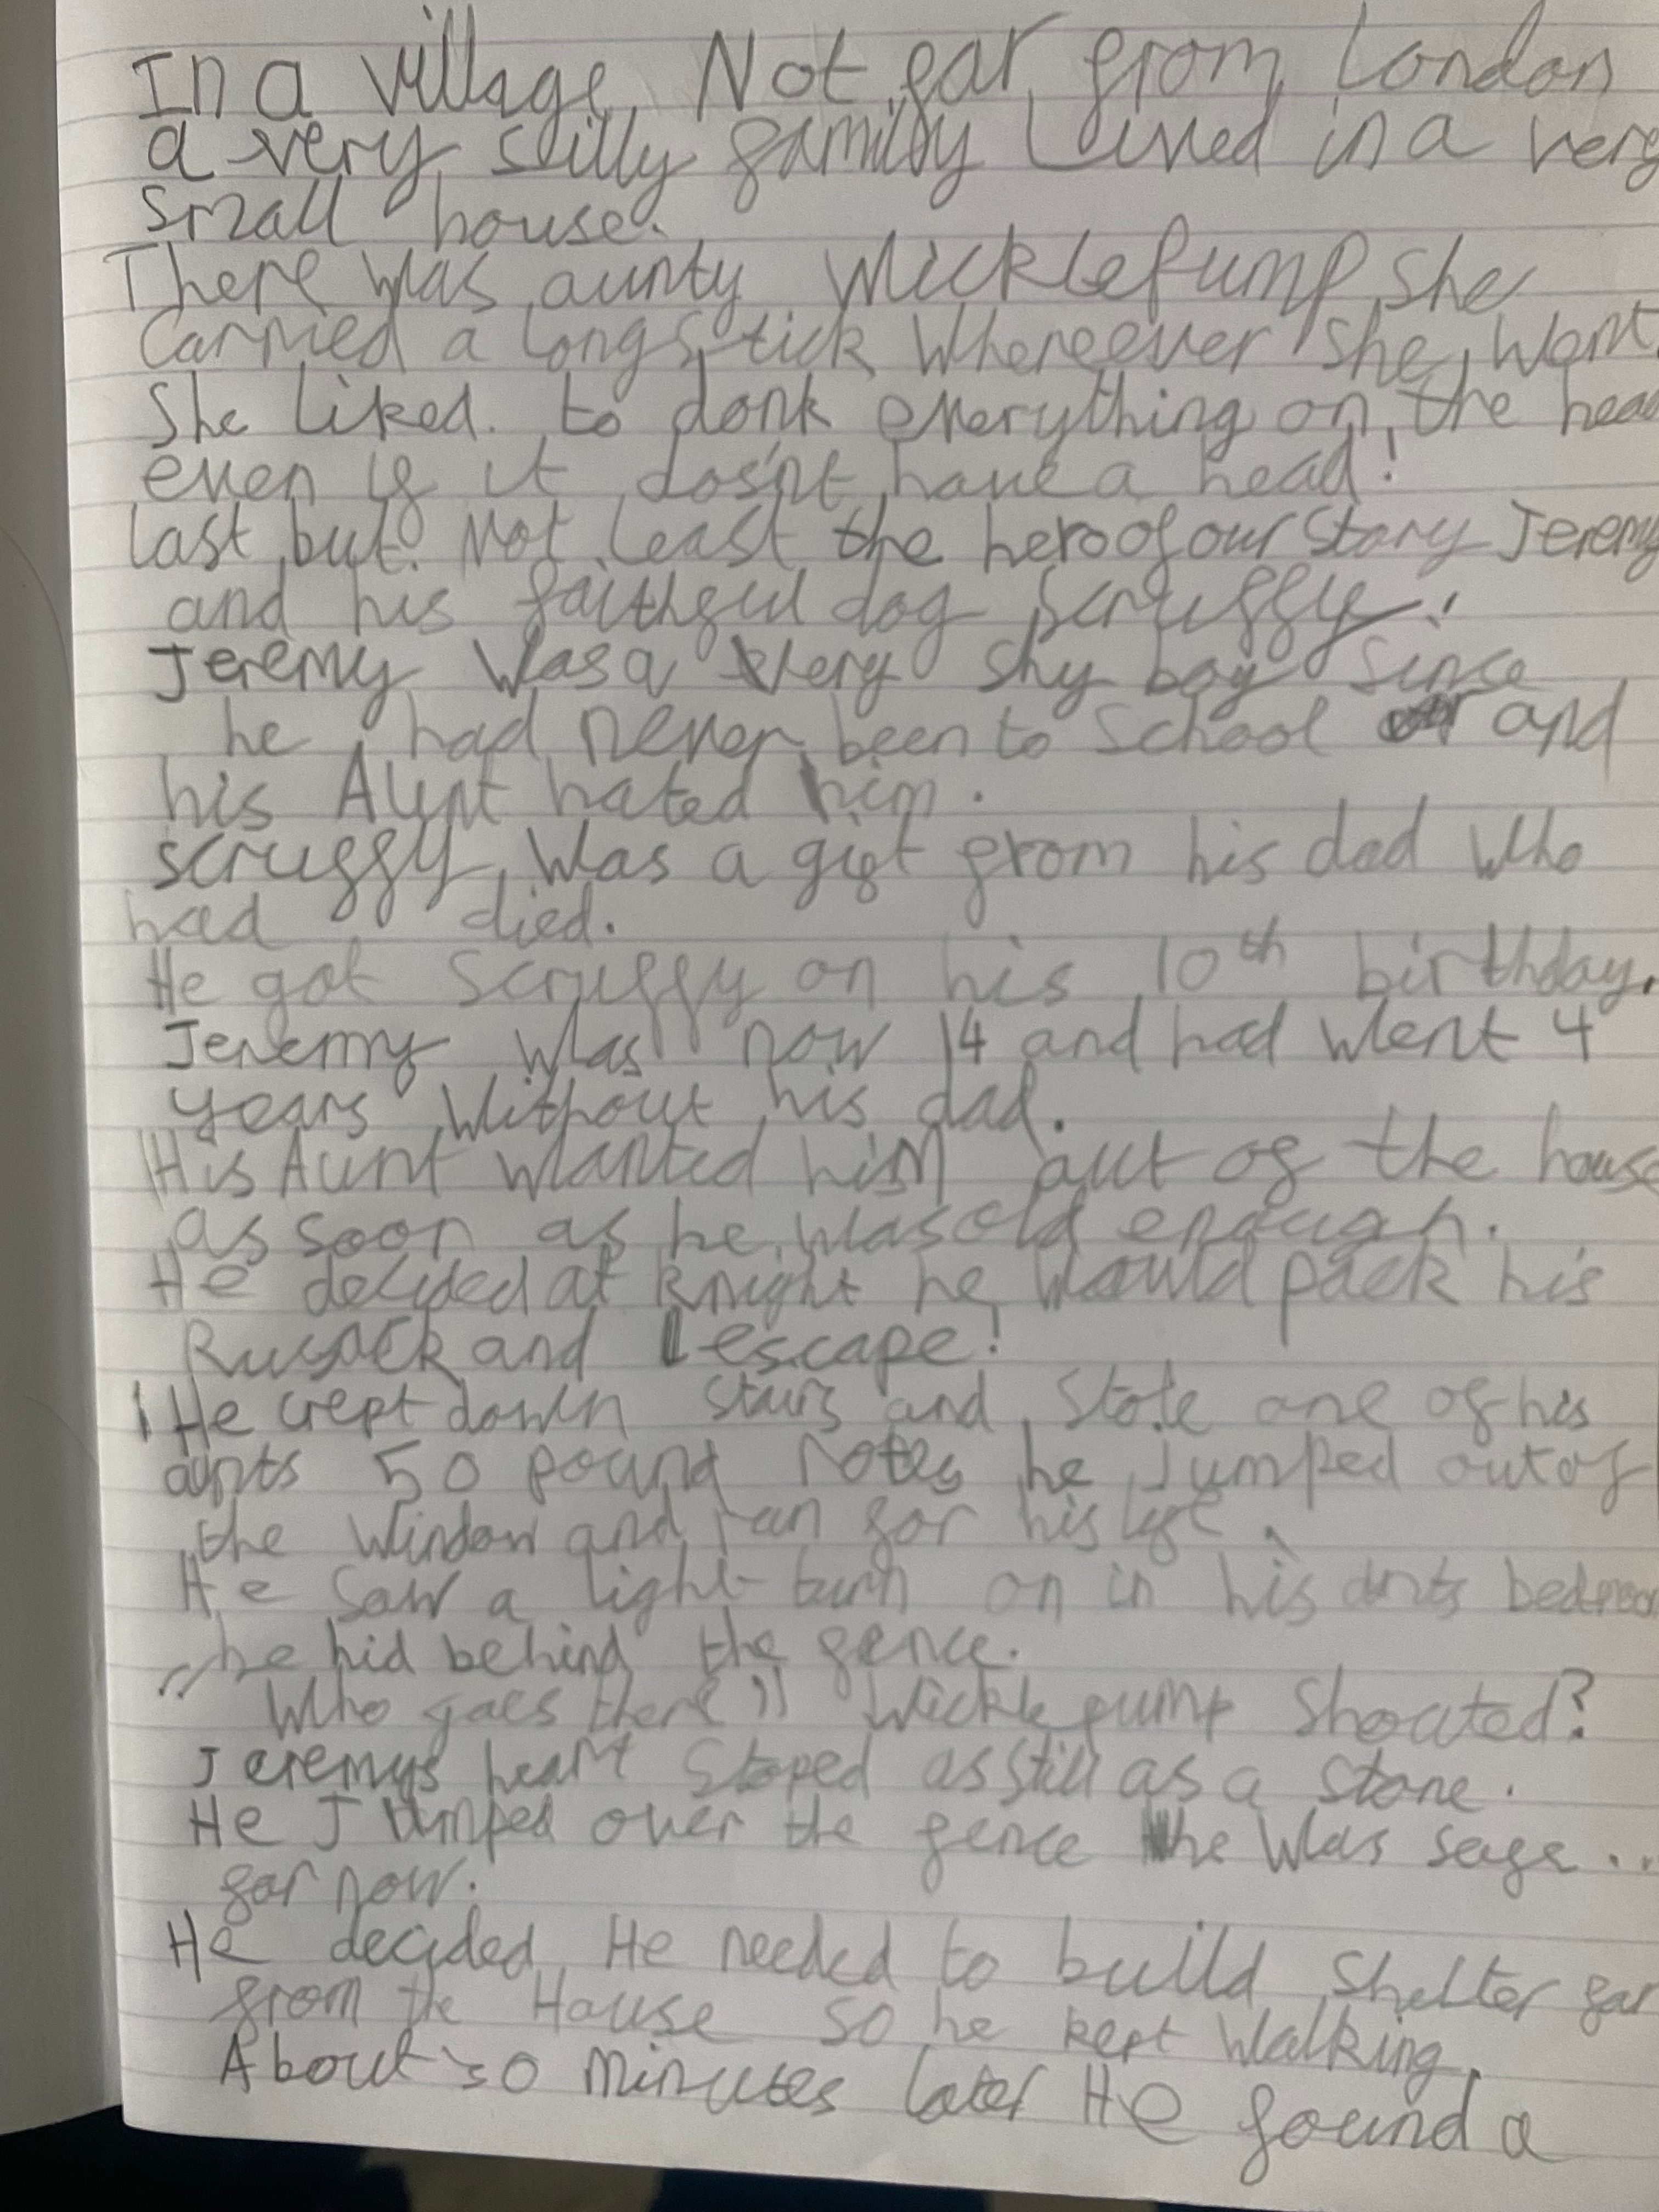 In a village Not far from London
a very silly family Lived in a very
small house.
There was aunty Wicklepump She
Carried a long stick Whereever she Went.
She liked to donk everything on the head
even if it dosn't have a head!
last but Not Least the hero of our story Jeremy
and his faithful dog Scruffy!
Jeremy Was a Very shy boy Since
he had never been to School and
his Aunt hated him.
scruffy Was a gift from his dad Who
had died.
He got Scruffy on his 10th birthday.
Jeremy was now 14 and had went 4
years Without his dad.
His Aunt wanted him out of the house
as soon as he was old enough.
He decided at knight he Would pack his
and escape!
He crept down stairs and Stole one of his
aunts 50 pound notes he Jumped out of
the Window and ran for his life.
He Saw a light turn on in his bedroom
he hid behind the fence.
"Who goes there" Wicklepump Shouted?
Jeremys heart Stoped as still as a stone.
He Jumped over the fence he Was safe...
for now.
He decided He needed to build Shelter far
from the House so he kept Walking.
About 30 Minutes later He found a